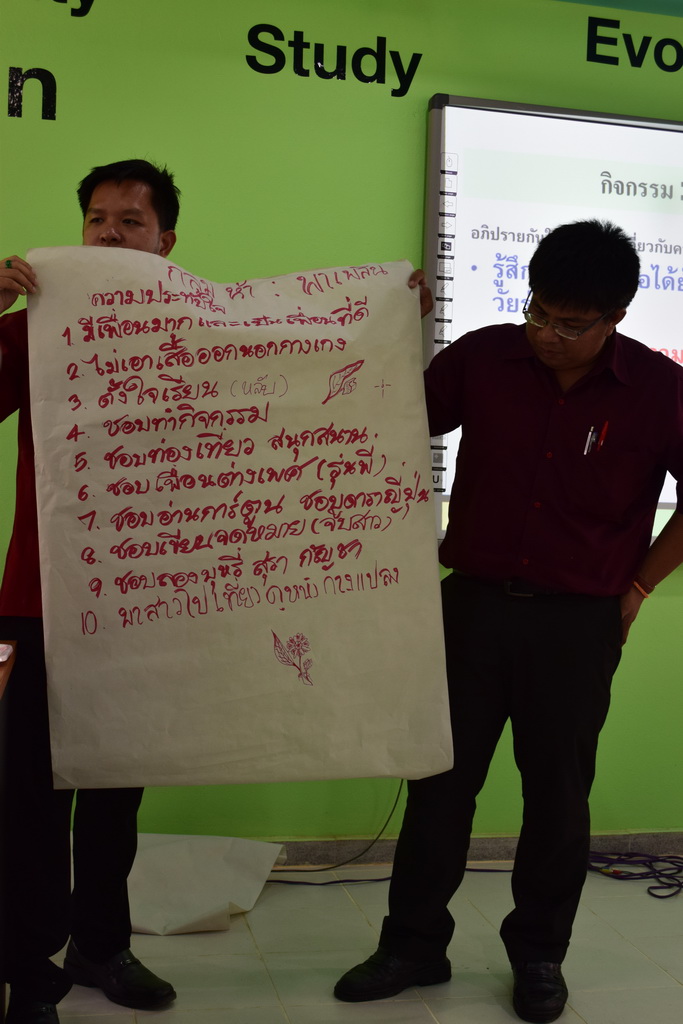 Study
Evo
n
กิจกรรม
อภิปรายกัน
เกี่ยวกับค
รู้สึก
วัย
ความประทับใจ
1. มีเพื่อนมาก และเป็นเพื่อนที่ดี
2. ไม่เอาเสื้อออกนอกกางเกง
3. ตั้งใจเรียน (หลับ)
4. ชอบทำกิจกรรม
5. ชอบท่องเที่ยว สนุกสนาน
6. ชอบเพื่อนต่างเพศ (รุ่นพี่)
7. ชอบอ่านการ์ตูน ชอบดาราญี่ปุ่น
8. ชอบเขียนจดหมาย (จีบสาว)
9. ชอบลองบุหรี่ สุรา กัญชา
10. พาสาวไปเที่ยวดูหนังกลางแปลง